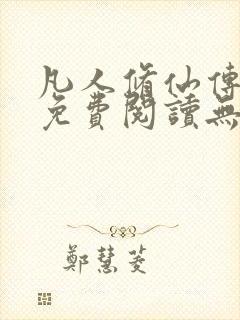 凡人脩仙傳
免費閱讀無
鄭慧菱